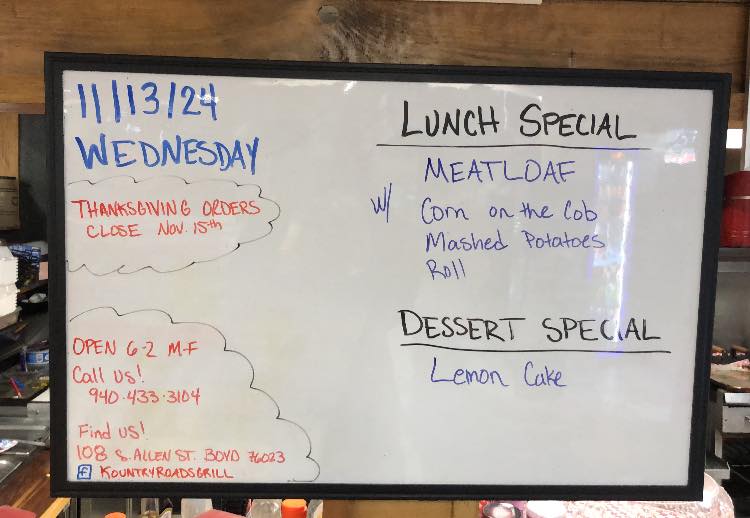 11/13/24
WEDNESDAY
THANKSGIVING ORDERS
CLOSE NOV. 15th
OPEN 6-2 M-F
Call us!
940.433.3104
Find us!
108 S. ALLEN ST. BOYD 76023
f KOUNTRYROADSGRILL
LUNCH SPECIAL
MEATLOAF
w/ Corn on the Cob
Mashed Potatoes
Roll
DESSERT SPECIAL
Lemon Cake